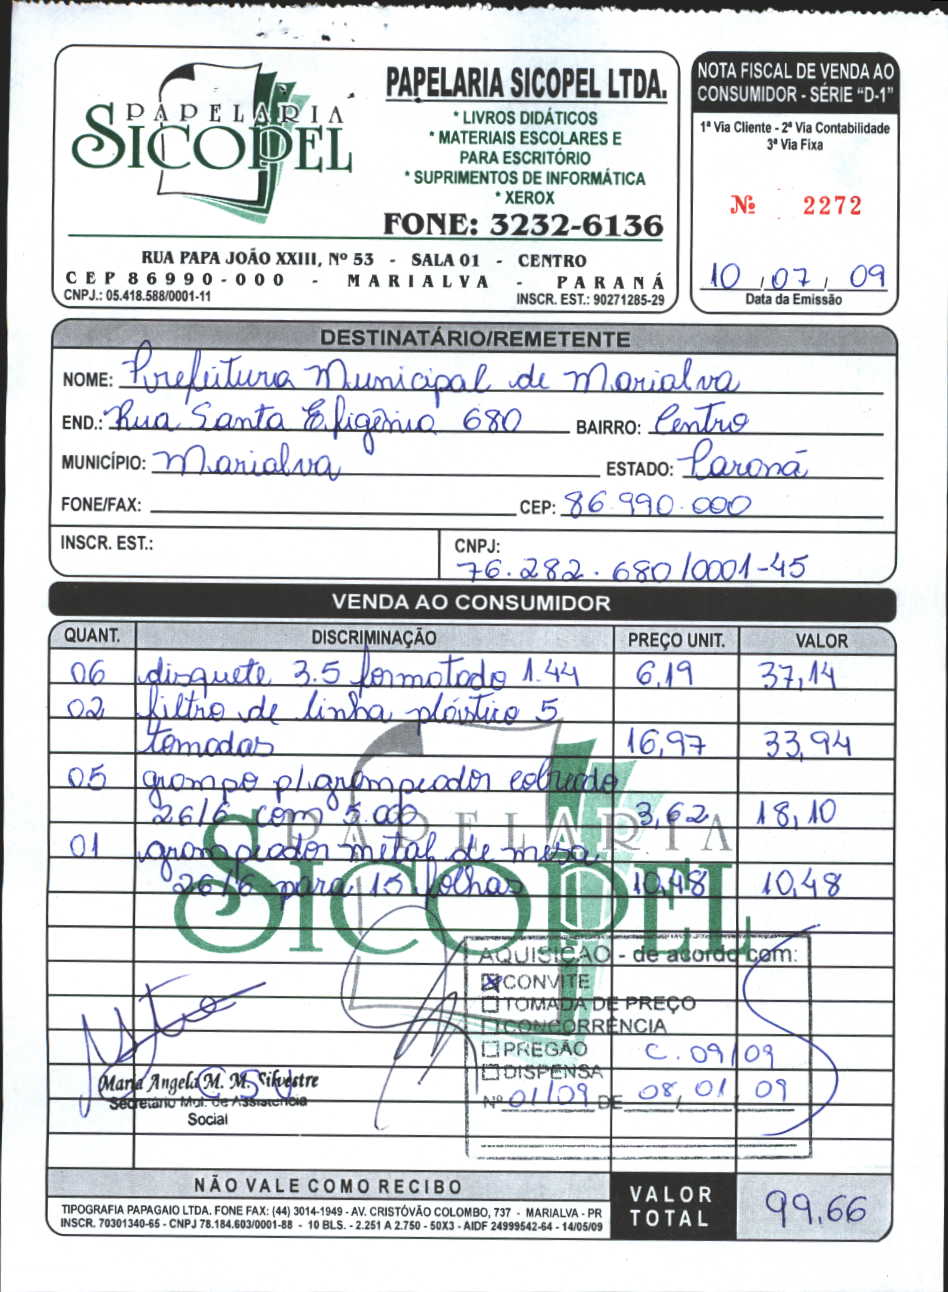 PAPELARIA
SICOPEL
PAPELARIA SICOPEL LTDA.
* LIVROS DIDÁTICOS
* MATERIAIS ESCOLARES E
PARA ESCRITÓRIO
* SUPRIMENTOS DE INFORMÁTICA
* XEROX
FONE: 3232-6136
RUA PAPA JOÃO XXIII, Nº 53 - SALA 01 - CENTRO
CEP 86990-000 - MARIALVA - PARANÁ
CNPJ.: 05.418.588/0001-11 INSCR. EST.: 90271285-29
NOTA FISCAL DE VENDA AO
CONSUMIDOR - SÉRIE "D-1"
1ª Via Cliente - 2ª Via Contabilidade
3ª Via Fixa
Nº 2272
10 / 07 / 09
Data da Emissão
DESTINATÁRIO/REMETENTE
NOME: Prefeitura Municipal de Marialva
END.: Rua Santa Efigênia 680 BAIRRO: Centro
MUNICÍPIO: Marialva ESTADO: Paraná
FONE/FAX: CEP: 86.990.000
INSCR. EST.: CNPJ:
76.282.680/0001-45
VENDA AO CONSUMIDOR
QUANT. DISCRIMINAÇÃO PREÇO UNIT. VALOR
06 disquete 3.5 formatado 1.44 6,19 37,14
02 filtro de linha plástico 5
tomadas 16,97 33,94
05 grampo p/grampeador cobreado
26/6 com 5.000 3,62 18,10
01 grampeador metal de mesa
26/6 para 15 folhas 10,48 10,48
PAPELARIA
SICOPEL
AQUISIÇÃO - de acordo com:
CONVITE
TOMADA DE PREÇO
CONCORRÊNCIA
PREGÃO C. 09/09
DISPENSA
Nº 01/09 DE 08/01/09
Maria Angela M. M. Silvestre
Secretário Mul. de Assistência
Social
NÃO VALE COMO RECIBO
TIPOGRAFIA PAPAGAIO LTDA. FONE FAX: (44) 3014-1949 - AV. CRISTÓVÃO COLOMBO, 737 - MARIALVA - PR
INSCR. 70301340-65 - CNPJ 78.184.603/0001-88 - 10 BLS. - 2.251 A 2.750 - 50X3 - AIDF 24999542-64 - 14/05/09
VALOR
TOTAL
99,66